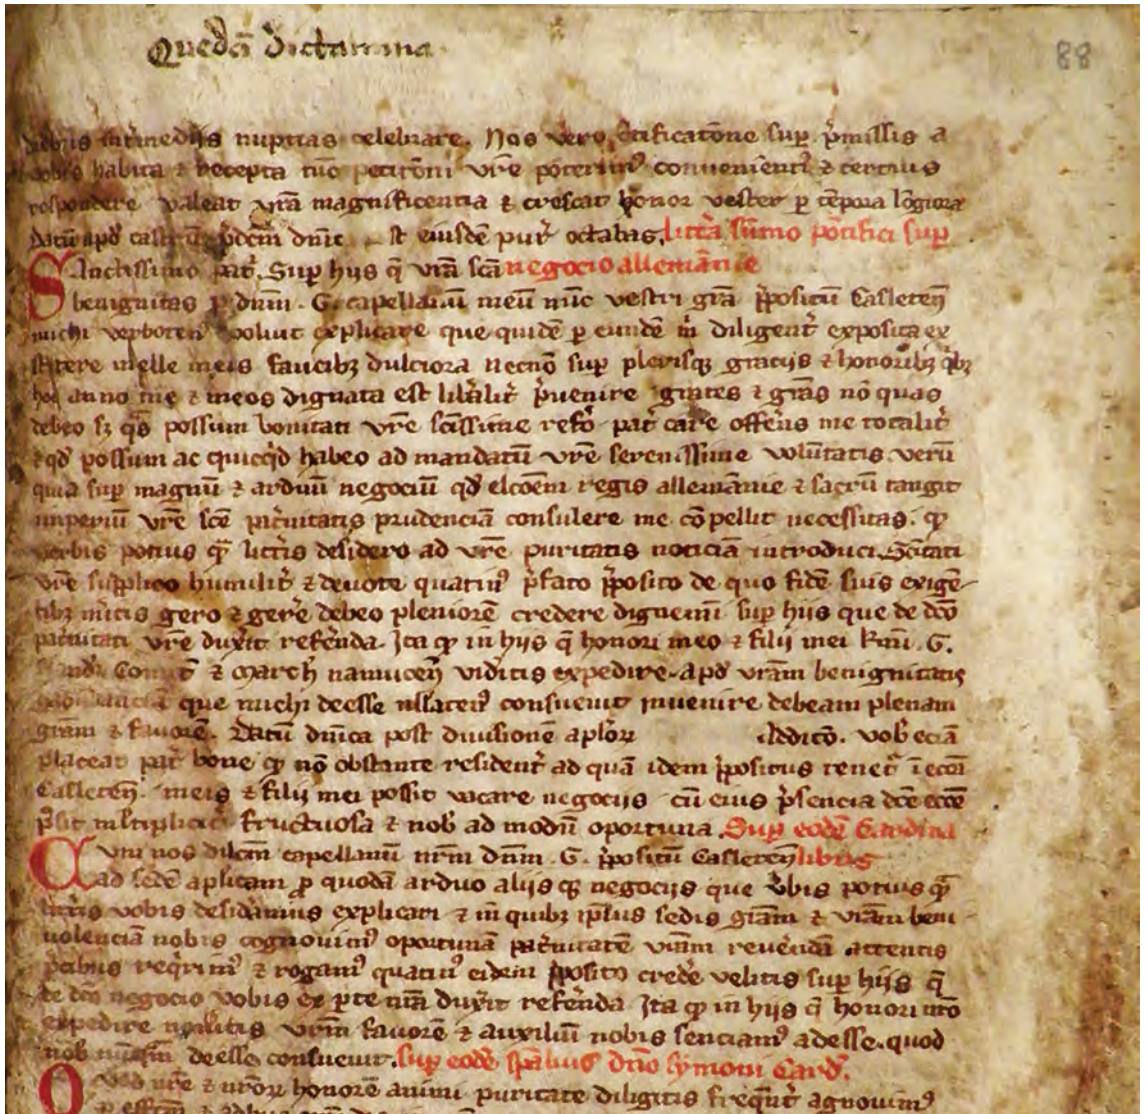 Quedā dictamina
88
diebus int̄medijs nuptias celebrare. Nos v̄ero c̄tificatōne suꝑ p̄missis a
vobis habita ⁊ recepta tūc petitōni vr̄e pot̄erimꝰ convenient̄ ⁊ certius
respondere valeat vr̄a magnificentia ⁊ crescat honor vester ꝑ tēpora lōgiora
Datū apd̄ castrū p̄dc̄m dnīc st eiusdē put̄ octabas. litt̄a sūmo pōtifici suꝑ
Sanctissimo pat̄. Suꝑ hijs q̄ vr̄a sc̄a negocio allemānie
benignitas ꝑ dnm̄. G. capellanū meū nūc vestri gr̄a p̄positū Casleten̄
michi verboten̄ voluit explicare que quidē ꝑ eundē m̄ diligent̄ exposita ex
stitere melle meis faucibꝫ dulciora necnō suꝑ plerisqꝫ gracijs ⁊ honoribꝫ q̄bꝫ
hoc anno me ⁊ meos dignata est lib̄alit̄ p̄uenire grates ⁊ gr̄as nō quas
debeo sꝫ q̄s possum bonitati vr̄e sc̄issime refō pat̄ care offer̄ns me totalit̄
⁊ qd̄ possum ac quicq̄d habeo ad mandatū vr̄e serenissime volūtatis. verū
quia suꝑ magnū ⁊ arduū negociū qd̄ elc̄oēm regis allemānie ⁊ sacrū tangit
imperiū vr̄e sc̄e pat̄nitatis prudenciā consulere me cōpellit necessitas. qꝫ
verbis potius qꝫ litt̄is desidero ad vr̄e puritatis noticiā introduci. Sc̄itati
vr̄e suꝑplico humilit̄ ⁊ deuote quatinꝰ p̄fato p̄posito de quo fidē suis exigē-
tibꝫ m̄itis gero ⁊ ger̄e debeo pleniorē credere dignemī suꝑ hijs que de dc̄o
pat̄nitati vr̄e dux̄it refer̄nda. Ita qꝫ in hijs q̄ honori meo ⁊ filij mei kmī. G.
⁊ march̄ namucen̄ viditis expedire. apd̄ vr̄am benignitatis
que michi deesse nllaten̄ꝰ consueuit inuenire debeam plenam
gr̄am ⁊ fauorē. Datū dnīca post diuisionē aplōꝝ Additō. vob̄ eciā
placeat pat̄ bone qꝫ nō obstante resident̄ ad quā idem p̄positus tenet̄ ī eccā
Casleten̄. meis ⁊ filij mei possit vacare negocijs cū eius p̄sencia dc̄e ecc̄e
p̄sit ml̄tiplicit̄ fructuosa ⁊ nob̄ ad modū oportuna. Suꝑ eodē Cardina
Cum nos dilc̄m capellanū nrm̄ dnm̄. G. p̄positū Casleten̄ libus
ad sedē aplicam ꝑ quodā arduo alijsqꝫ negocijs que v̄bis potius qꝫ
litt̄is vobis desid̄amus explicari ⁊ in quibꝫ ipsius sedis gr̄am ⁊ vr̄am beni-
uolenciā nobis cognouimꝰ oportunā pat̄nitatē vr̄am reuer̄ndā attentis
p̄cibus req̄rimꝰ ⁊ rogamꝰ quatinꝰ eidem p̄posito cred̄e velitis suꝑ hijs q̄
de dc̄o negocio vobis ex ꝑte nr̄a dux̄it refer̄nda. Ita qꝫ in hijs q̄ honori nr̄o
expedire vr̄m fauorē ⁊ auxiliū nobis senciamꝰ adesse. quod
nob̄ nūqm̄ deesse consueuit. Suꝑ eodē spālius dn̄o symoni Card̄.
vr̄e ⁊ nr̄oꝝ honorē animi puritate diligitis freqn̄t̄ agnouimꝰ